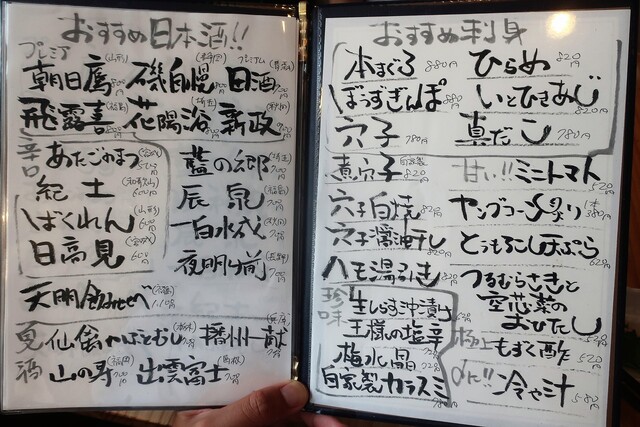 おすすめ日本酒!!
プレミア
朝日鷹(山形) 磯自慢(静岡) プレミアム 田酒(青森)
飛露喜(福島) 花陽浴(埼玉) 新政(秋田)
辛口
あたごのまつ(宮城)
紀土(和歌山) 600円
ばくれん(山形) 600円
日高見(宮城) 600円
藍の郷(埼玉)
辰泉(福島)
一白水成(秋田)
夜明け前(長野)
天明飲みくらべ(福島)
夏酒
仙禽かぶとむし(栃木) 播州一献(兵庫)
山の寿(福岡) 出雲富士(島根)
おすすめ刺身
本まぐろ 880円 ひらめ 820円
ぼうずぎんぽ 880円 いとひきあじ 820円
穴子 780円 真だこ 780円
煮穴子 自家製 820円 甘い!!ミニトマト 520円
穴子白焼 820円 ヤングコーン炙り 1本 380円
穴子醤油干し 820円 とうもろこし天ぷら 620円
ハモ湯引き つるむらさきと
空芯菜の
おひたし 520円
珍味
生しらす沖漬け
王様の塩辛
梅水晶
自家製カラスミ 780円
極上もずく酢 520円
冷や汁 580円